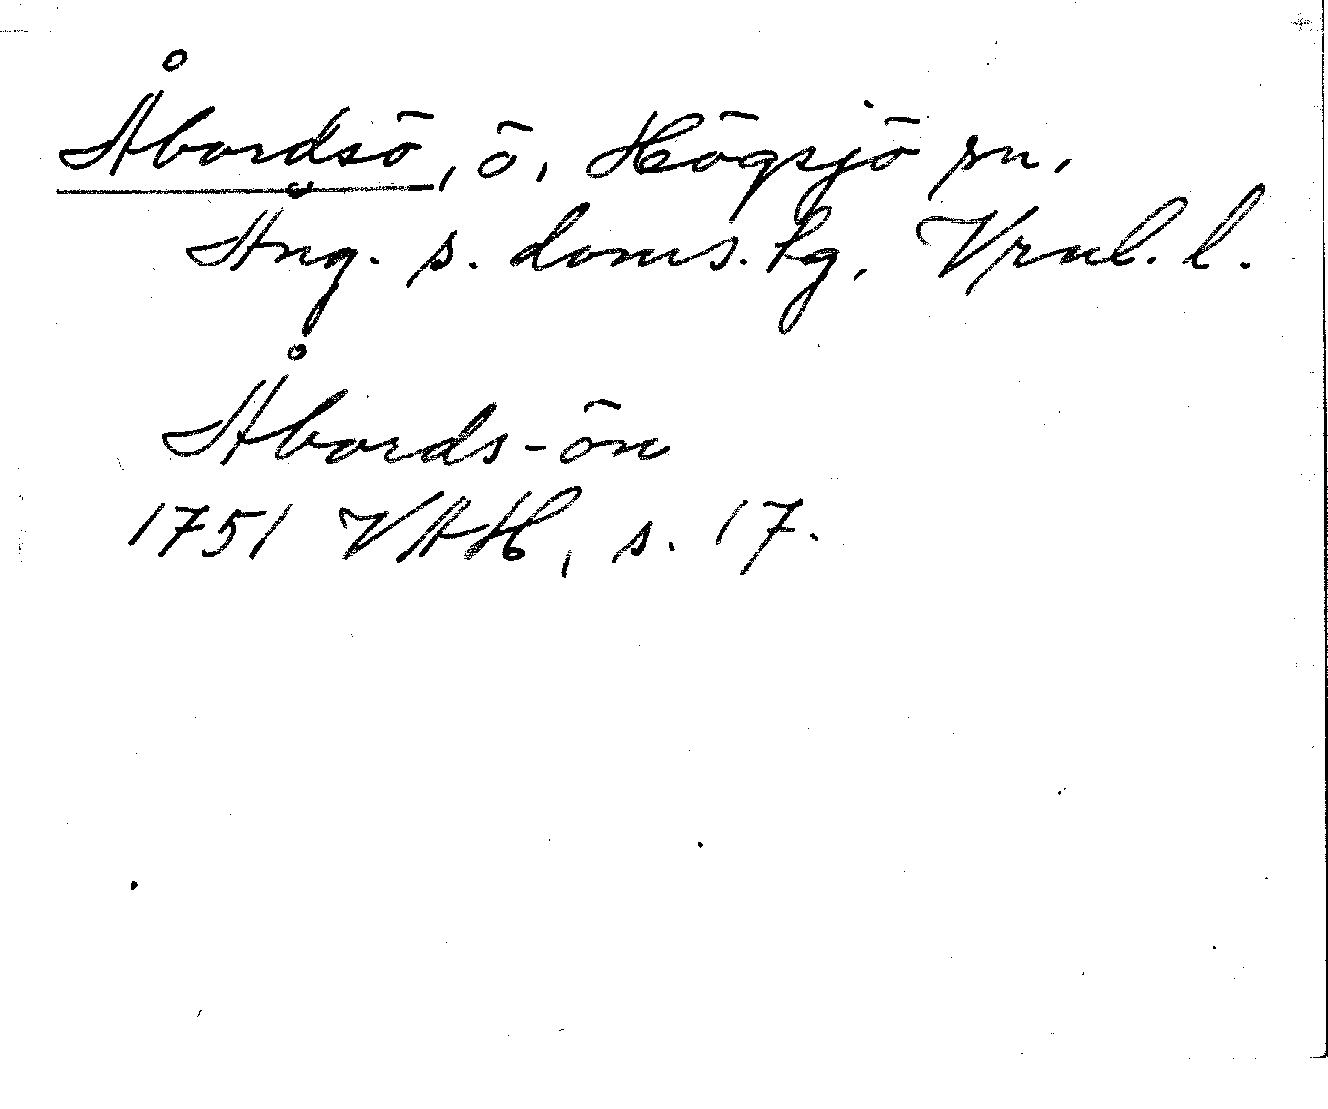 Åbordsö, ö, Högsjö sn,
Ång. s. doms. tg, Vrnl. l.
Åbords-ön
1751 VAH, s. 17.